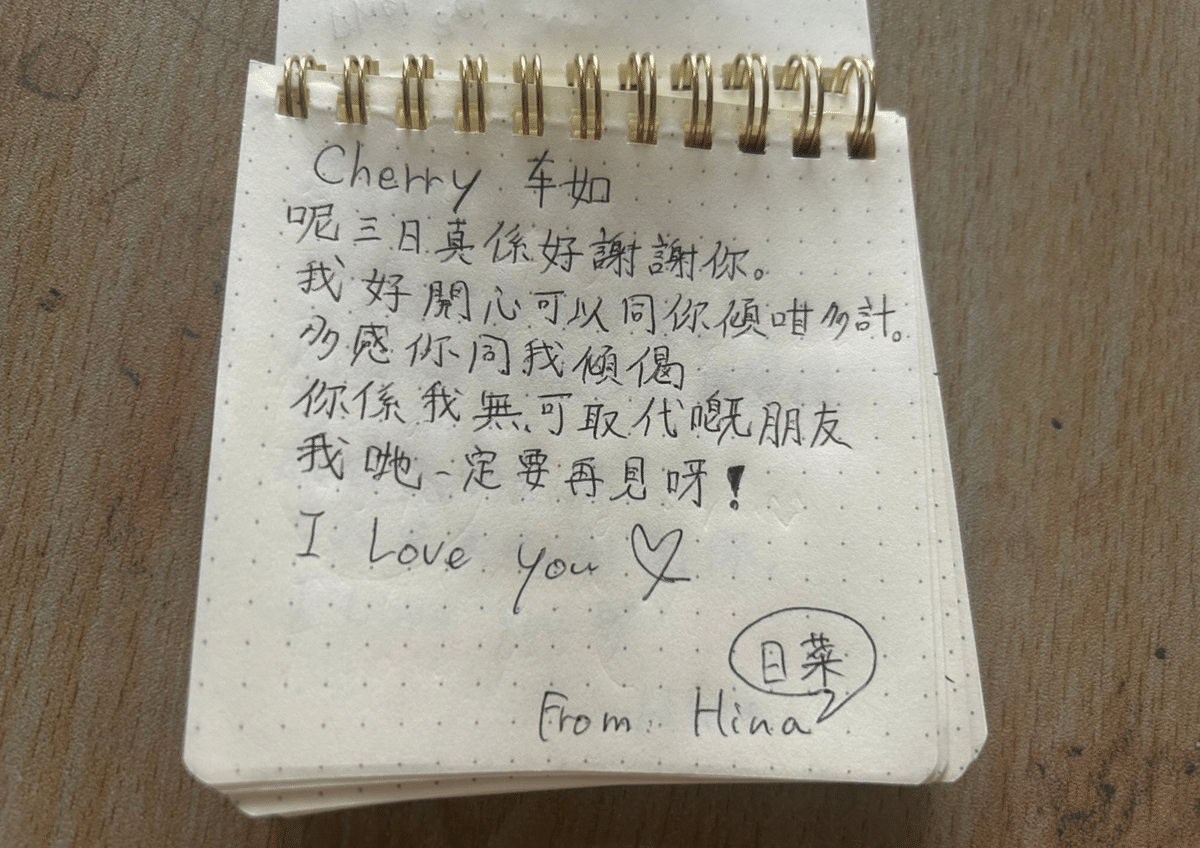 Cherry 车如
呢三日真係好謝謝你。
我好開心可以同你傾咁多計。
多感你同我傾偈
你係我無可取代嘅朋友
我哋一定要再見呀！
I Love you ♡
日菜
From: Hina